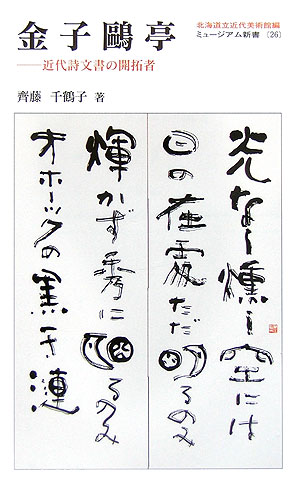 金子鷗亭
——近代詩文書の開拓者
齊藤 千鶴子 著
北海道立近代美術館編
ミュージアム新書 〔26〕
光なし燻し空には
日の在處ただ明るのみ
輝かず秀に明るのみ
オホーツクの黒き漣